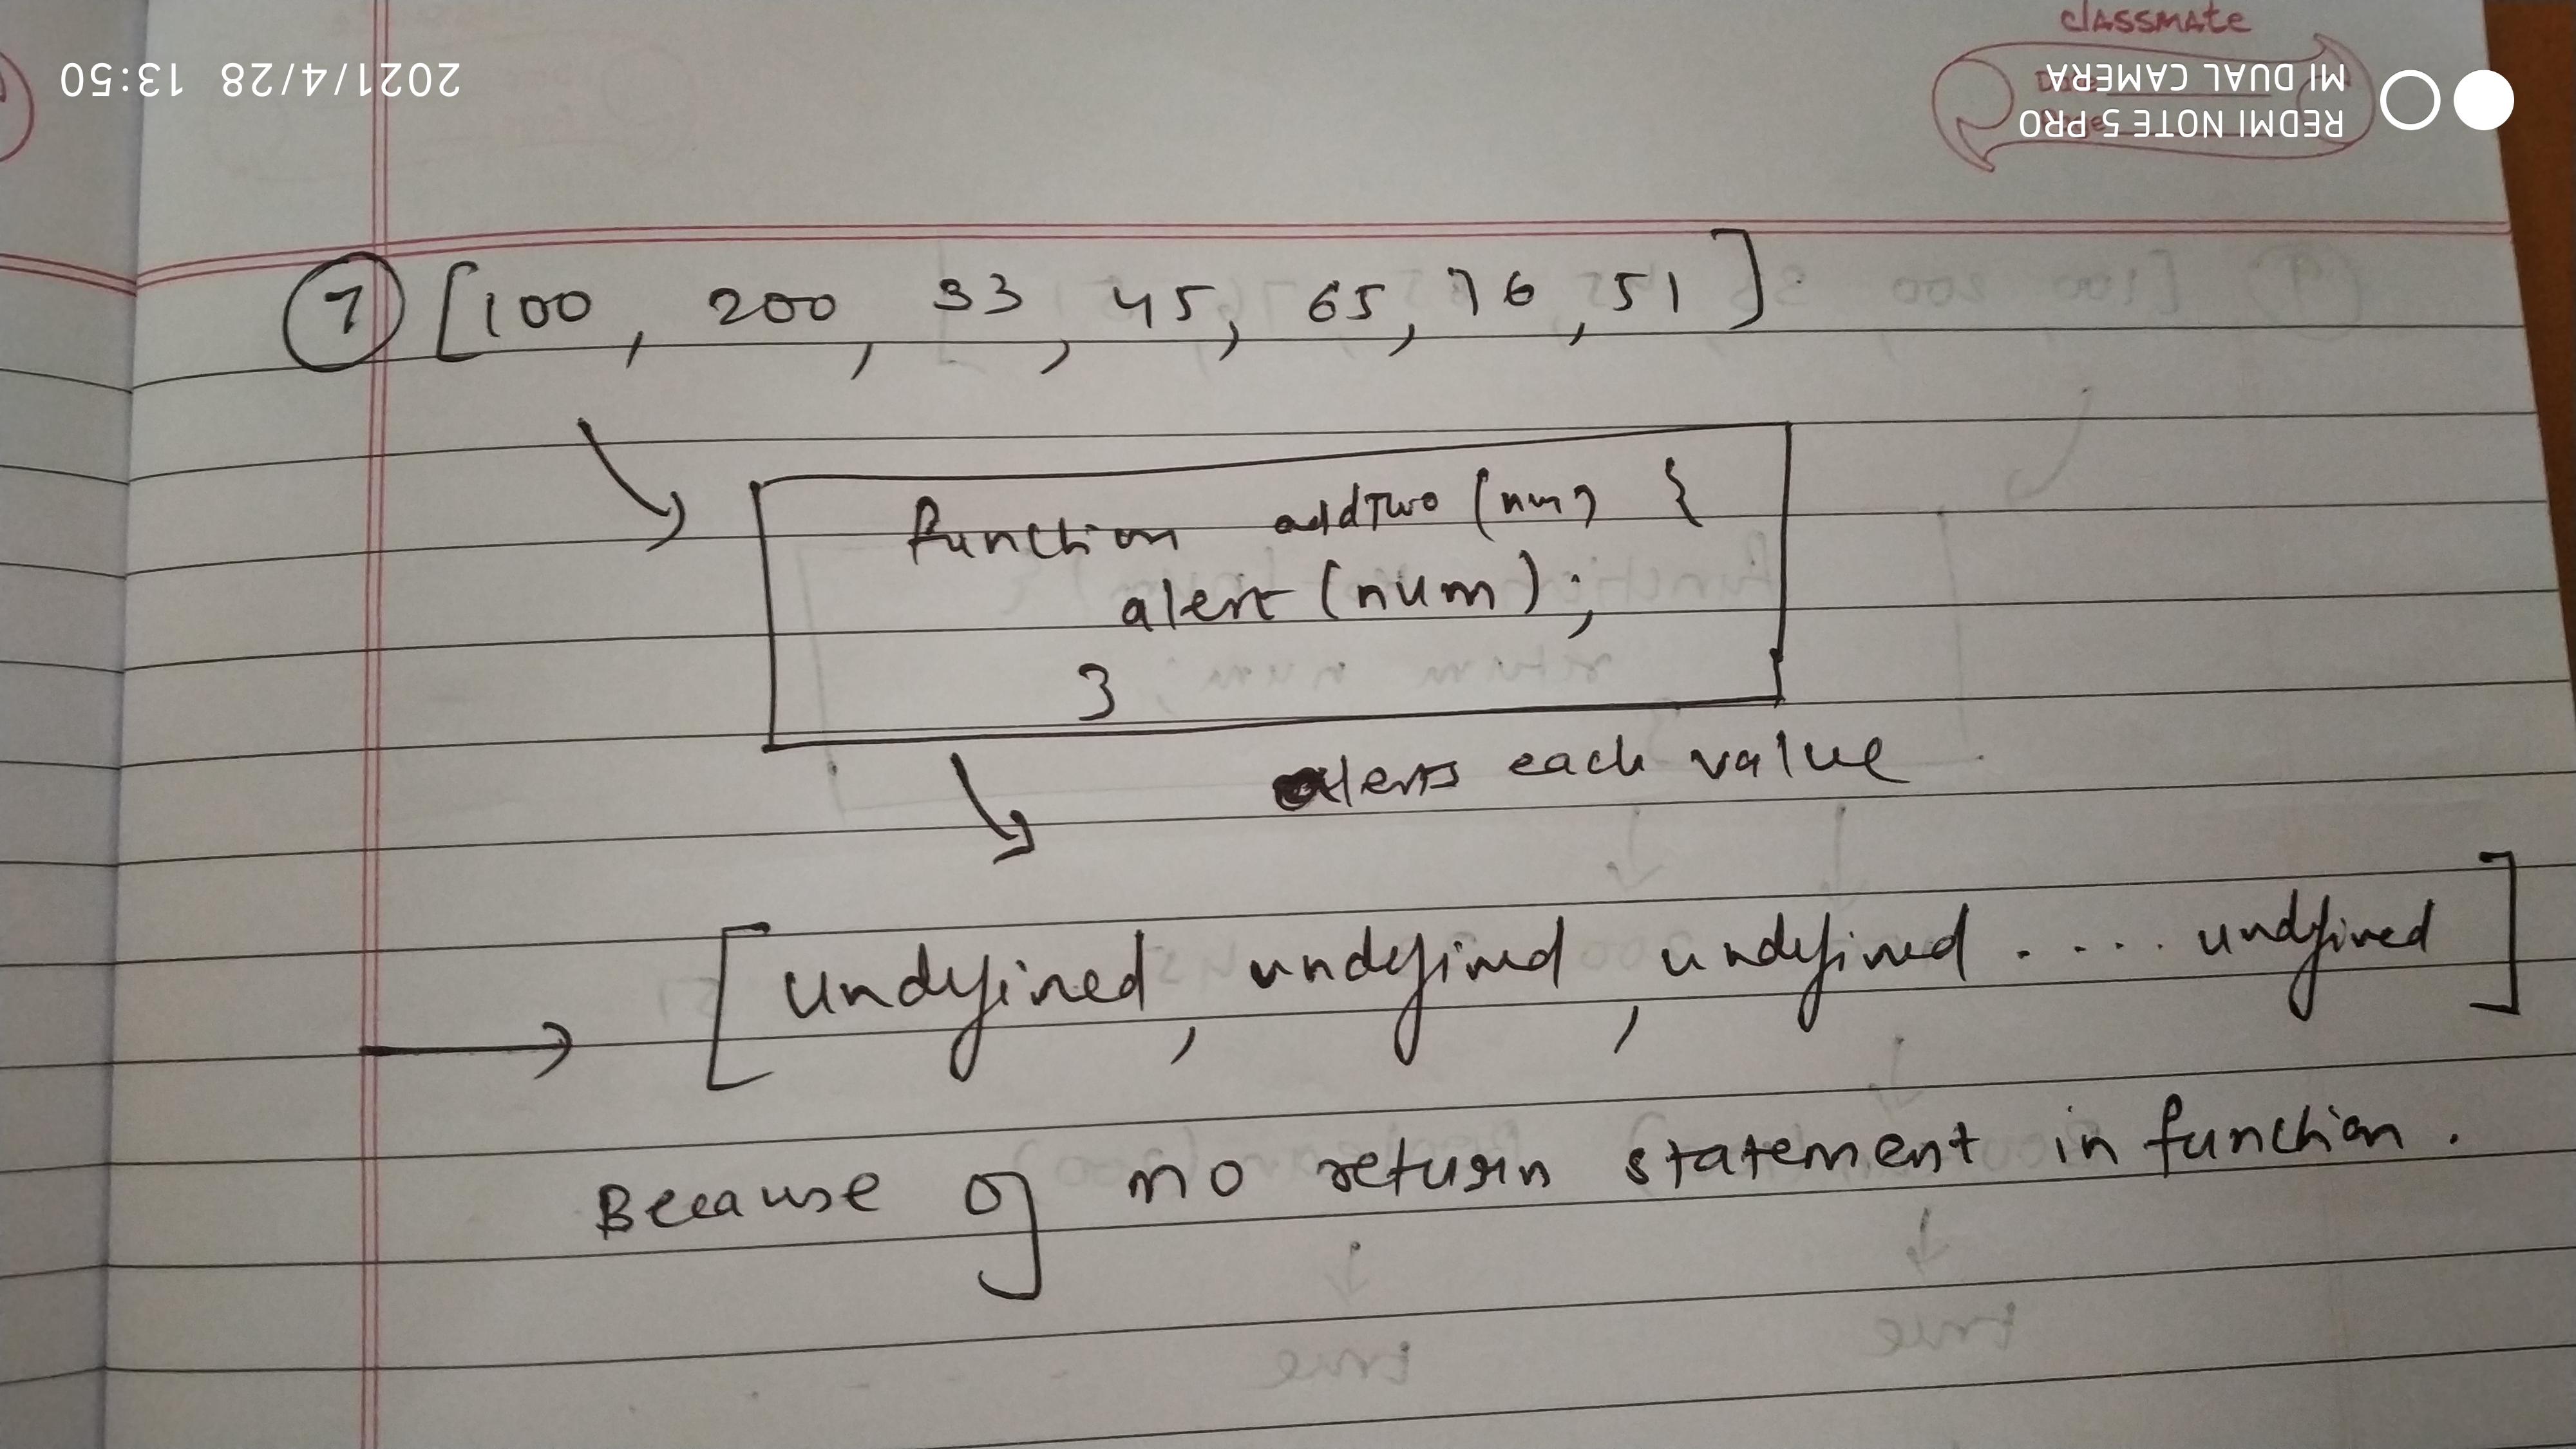 classmate
Date
Page
2021/4/28 13:50
REDMI NOTE 5 PRO
MI DUAL CAMERA
7 [100, 200, 33, 45, 65, 76, 51]
function addTwo (num) {
alert (num);
}
alerts each value
[undefined, undefined, undefined ..... undefined]
Because of no return statement in function.